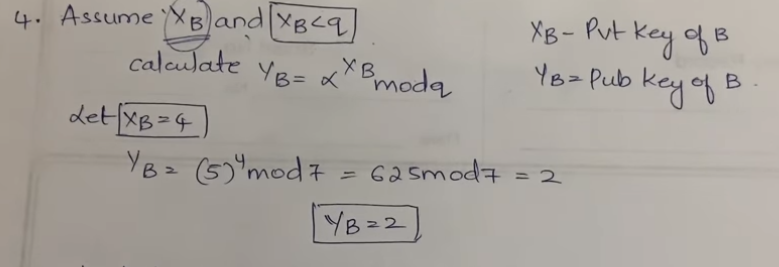 4. Assume XB and XB<q
calculate YB = α^XB mod q
XB - Pvt key of B
YB = Pub key of B.
Let XB = 4
YB = (5)^4 mod 7 = 625 mod 7 = 2
YB = 2